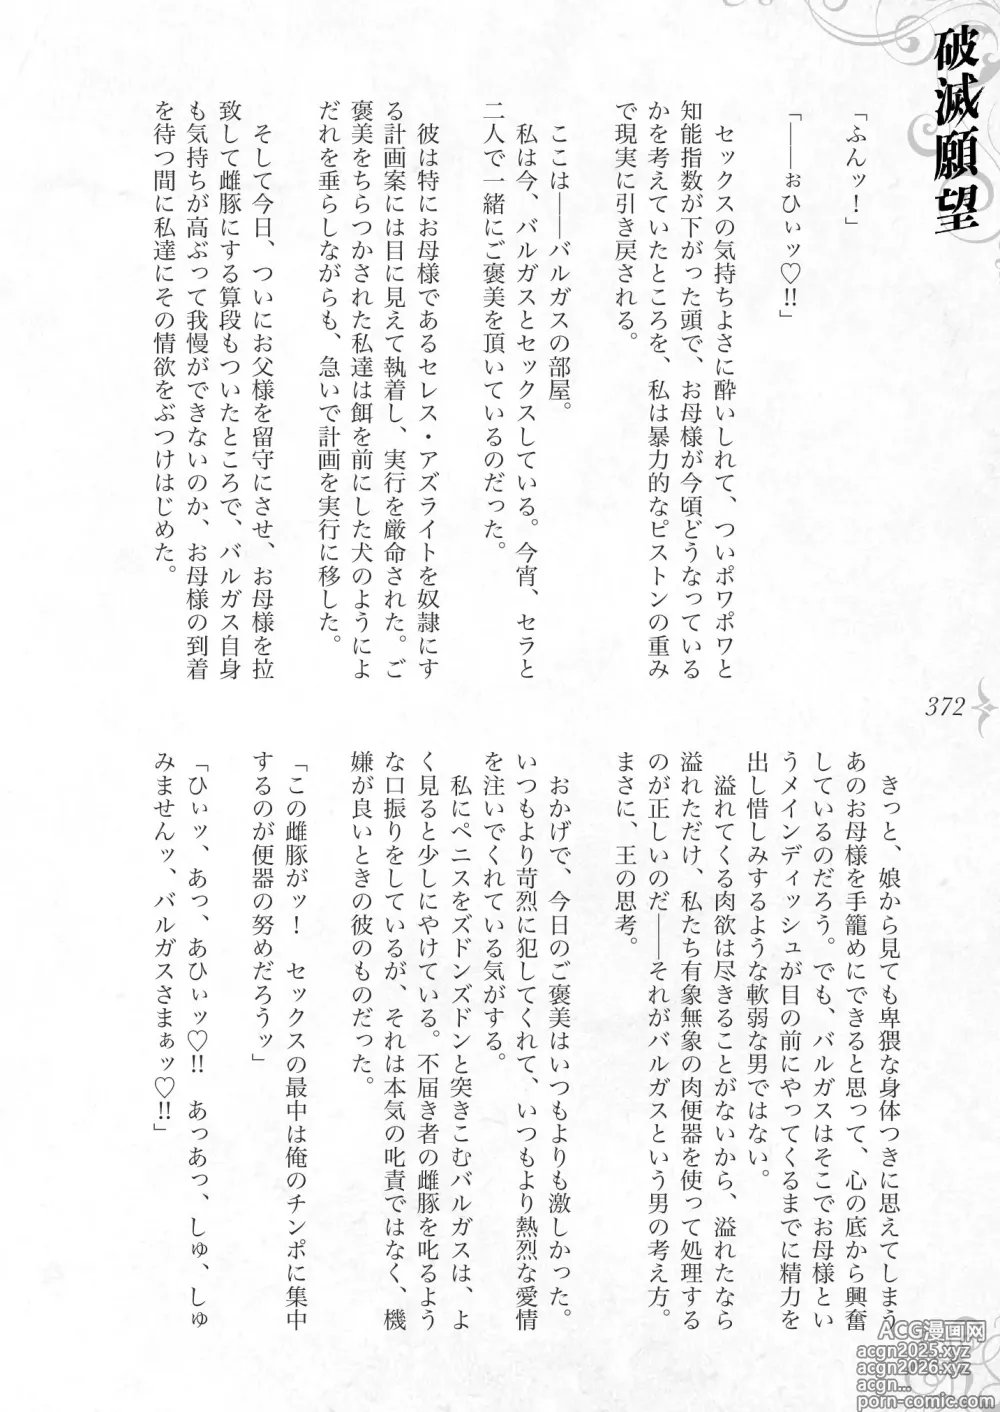 破滅願望
「ふんッ！」
「――ぉひぃッ♡!!」
セックスの気持ちよさに酔いしれて、ついポワポワと
知能指数が下がった頭で、お母様が今頃どうなっている
かを考えていたところを、私は暴力的なピストンの重み
で現実に引き戻される。
ここは――バルガスの部屋。
私は今、バルガスとセックスしている。今宵、セラと
二人で一緒にご褒美を頂いているのだった。
彼は特にお母様であるセレス・アズライトを奴隷にす
る計画案には目に見えて執着し、実行を厳命された。ご
褒美をちらつかされた私達は餌を前にした犬のようによ
だれを垂らしながらも、急いで計画を実行に移した。
そして今日、ついにお父様を留守にさせ、お母様を拉
致して雌豚にする算段もついたところで、バルガス自身
も気持ちが高ぶって我慢ができないのか、お母様の到着
を待つ間に私達にその情欲をぶつけはじめた。
372
きっと、娘から見ても卑猥な身体つきに思えてしまう
あのお母様を手籠めにできると思って、心の底から興奮
しているのだろう。でも、バルガスはそこでお母様とい
うメインディッシュが目の前にやってくるまでに精力を
出し惜しみするような軟弱な男ではない。
溢れてくる肉欲は尽きることがないから、溢れたなら
溢れただけ、私たち有象無象の肉便器を使って処理する
のが正しいのだ――それがバルガスという男の考え方。
まさに、王の思考。
おかげで、今日のご褒美はいつもよりも激しかった。
いつもより苛烈に犯してくれて、いつもより熱烈な愛情
を注いでくれている気がする。
私にペニスをズドンズドンと突きこむバルガスは、よ
く見ると少しにやけている。不届き者の雌豚を叱るよう
な口振りをしているが、それは本気の叱責ではなく、機
嫌が良いときの彼のものだった。
「この雌豚がッ！　セックスの最中は俺のチンポに集中
するのが便器の努めだろうッ」
「ひぃッ、あっ、あひぃッ♡!!　あっあっ、しゅ、しゅ
みませんッ、バルガスさまぁッ♡!!」
ACG漫画网
acgn2025.xyz
acgn2026.xyz
acgn...
porn-comic.com